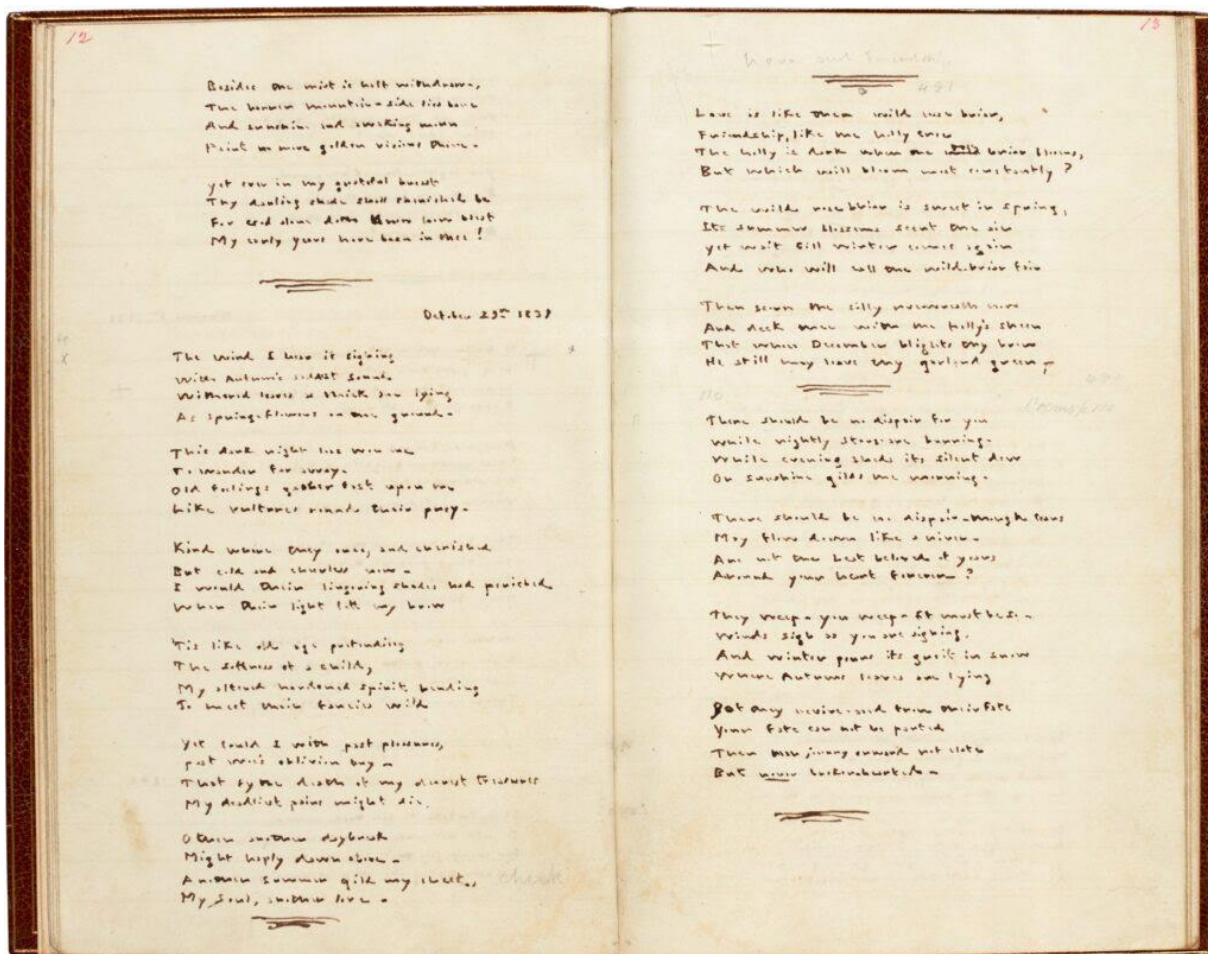 12
Besides the mist is half withdrawn,
The barren mountain-side lies bare
And sunshine and awaking morn
Paint no more golden visions there -
yet ever in my grateful breast
Thy darling shade shall cherished be
For God alone doth know how blest
My early years have been in thee!
October 29th 1839
The wind I hear it sighing
With Autumn's saddest sound -
Withered leaves as thick are lying
As spring-flowers on the ground -
This dark night has won me
To wander far away -
Old feelings gather fast upon me
Like vultures round their prey -
Kind where they once, and cherished
But cold and cheerless now -
I would their lingering shades had perished
When their light left my brow
Tis like old age pretending
The softness of a child,
My altered hardened spirit bending
To meet their fancies wild
Yet could I with past pleasures,
past woe's oblivion buy -
That by the death of my dearest treasures
My deadliest pains might die,
O then another daybreak
Might haply dawn above -
Another summer gild my cheek, check
My Soul, another love -
13
Love and Friendship
Love is like the wild rose briar,
Friendship, like the holly tree
The holly is dark when the rose briar blooms,
But which will bloom most constantly?
The wild rose briar is sweet in spring,
Its summer blossoms scent the air
yet wait till winter comes again
And who will call the wild-briar fair
Then scorn the silly rose-wreath now
And deck thee with the holly's sheen
That when December blights thy brow
He still may leave thy garland green -
There should be no despair for you
While nightly stars are burning -
While evening sheds its silent dew
Or sunshine gilds the morning -
There should be no despair - though tears
May flow down like a river -
Are not the best beloved of years
Around your heart forever?
They weep - you weep - It must be so -
Winds sigh as you are sighing,
And winter pours its grief in snow
Where Autumns leaves are lying
Yet they revive - and from their fate
Your fate can not be parted
Then journey onward not elate
But never broken-hearted -